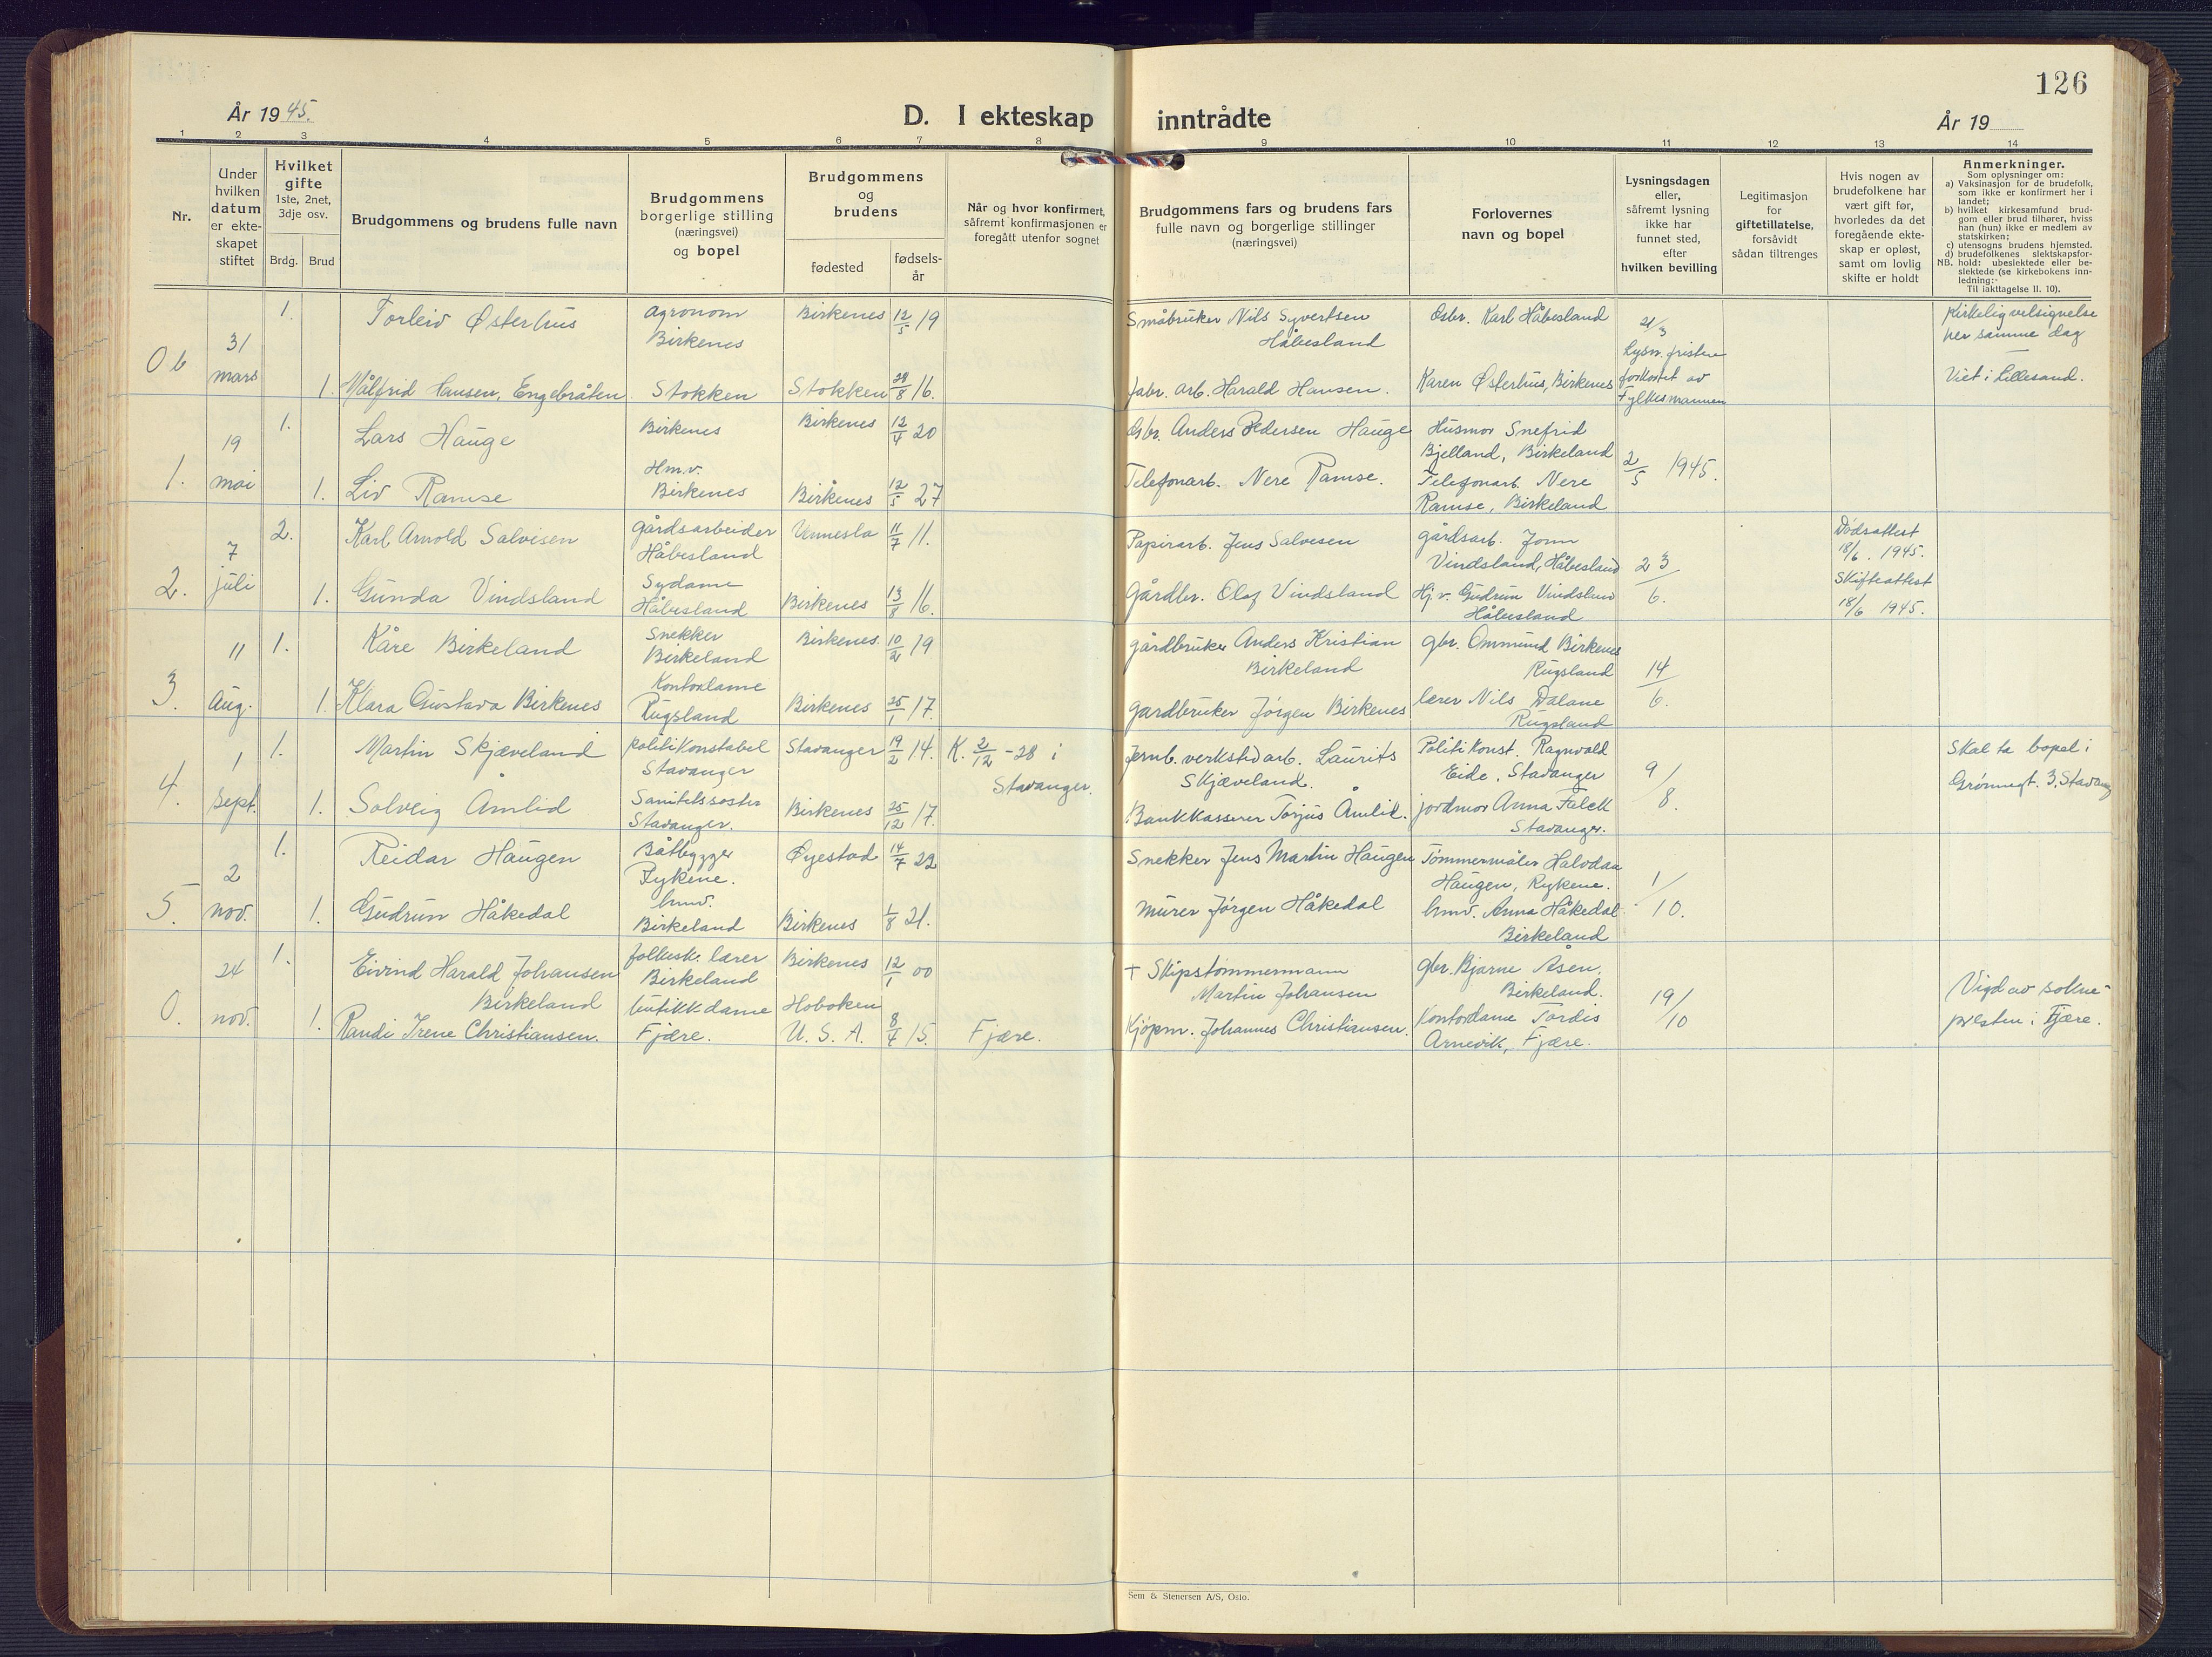 126
År 1945.
D. I ekteskap inntrådte
År 19
1 2 3 4 5 6 7 8 9 10 11 12 13 14
Nr.
Under
hvilken
datum
er ekte-
skapet
stiftet
Hvilket
gifte
1ste, 2net,
3dje osv.
Brdg. Brud
Brudgommens og brudens fulle navn
Brudgommens
borgerlige stilling
(næringsvei)
og bopel
Brudgommens
og
brudens
fødested
fødsels-
år
Når og hvor konfirmert,
såfremt konfirmasjonen er
foregått utenfor sognet
Brudgommens fars og brudens fars
fulle navn og borgerlige stillinger
(næringsvei)
Forlovernes
navn og bopel
Lysningsdagen
eller,
såfremt lysning
ikke har
funnet sted,
efter
hvilken bevilling
Legitimasjon
for
giftetillatelse,
forsåvidt
sådan tiltrenges
Hvis nogen av
brudefolkene har
vært gift før,
hvorledes da det
foregående ekte-
skap er opløst,
samt om lovlig
skifte er holdt
Anmerkninger.
Som oplysninger om:
a) Vaksinasjon for de brudefolk,
som ikke er konfirmert her i
landet;
b) hvilket kirkesamfund brud-
gom eller brud tilhører, hviss
han (hun) ikke er medlem av
statskirken;
c) utensogns brudens hjemsted.
d) brudefolkenes slektskapsfor-
NB. hold: ubeslektede eller be-
slektede (se kirkebokens inn-
ledning:
Til iakttagelse II. 10).
0 b
31
mars
1.
Torleiv Østerhus
Agronom
Birkenes
Birkenes 12/5 19
Småbruker Nils Syvertsen
Håbesland
Gbr. Karl Håbesland
21/3
Lysn. fristen
forkortet av
Fylkesmannen
Kirkelig velsignelse
her samme dag
Viet i Lillesand.
1. Målfrid Hansen, Engebråten
Stokken
Stokken 29/8 16.
fabr. arb. Harald Hansen.
Karen Østerhus, Birkenes
1.
19
mai
1.
Lars Hauge
Birkenes
Birkenes 12/4 20
Gbr. Anders Pedersen Hauge
Husmor Snefrid
Bjelland, Birkeland
2/5 1945.
1. Liv Ramse
Hm.v.
Birkenes
Birkenes 12/5 27
Telefonarb. Nere Ramse.
Telefonarb. Nere
Ramse, Birkeland
2.
7
juli
2.
Karl Arnold Salvesen
gårdsarbeider
Håbesland
Vennesla 11/7 11.
Papirarb. Jens Salvesen
gårdsarb. Jonn
Vindsland, Håbesland
23/6.
Dødsattest
18/6. 1945.
Skifteattest
18/6 1945.
1. Gunda Vindsland
Sydame
Håbesland
Birkenes 13/8 16.
Gårdbr. Olaf Vindsland
Hj.v. Gudrun Vindsland
Håbesland
3.
11
Aug.
1.
Kåre Birkeland
Snekker
Birkeland
Birkenes. 10/2 19
gårdbruker Anders Kristian
Birkeland
gbr. Ommund Birkenes
Rugsland
14/6.
1. Klara Gustava Birkenes
Kontordame
Rugsland
Birkenes 25/1 17.
gardbruker Jørgen Birkenes
lærer Nils Dalane
Rugsland
4.
1
Sept.
1.
Martin Skjæveland
politikonstabel
Stavanger
Stavanger 19/2 14.
K. 2/12 - 28 i
Stavanger.
Jernb. verkstedarb. Laurits
Skjæveland.
Politikonst. Ragnvald
Eide, Stavanger
9/8.
Skal ta bopel i
Grønnegt. 3, Stavang
1. Solveig Åmlid
Sanitetssøster
Stavanger.
Birkenes 25/12 17.
Bankkasserer Torjus Åmlid.
jordmor Anna Falck
Stavanger.
5.
2
nov.
1.
Reidar Haugen
Båtbygger
Rykene.
Øyestad 14/7 22
Snekker Jens Martin Haugen
Tømmermåler Halvdan
Haugen, Rykene.
1/10.
1. Gudrun Håkedal
hmv.
Birkeland
Birkenes 1/8 21.
Murer Jørgen Håkedal
hmv. Anna Håkedal
Birkeland
0.
24
nov.
1.
Eivind Harald Johansen
Birkeland
folkesk. lærer
Birkeland
Birkenes 12/1 00
+ Skipstømmermann
Martin Johansen
gbr. Bjarne Åsen,
Birkeland.
19/10
Vigd av sokne-
presten i Fjære.
1. Randi Irene Christiansen.
butikkdame
Fjære.
Hoboken
U. S. A. 8/4 15.
Fjære.
Kjøpm. Johannes Christiansen.
Kontordame Tordis
Arnevik, Fjære.
Sem & Stenersen A/S, Oslo.